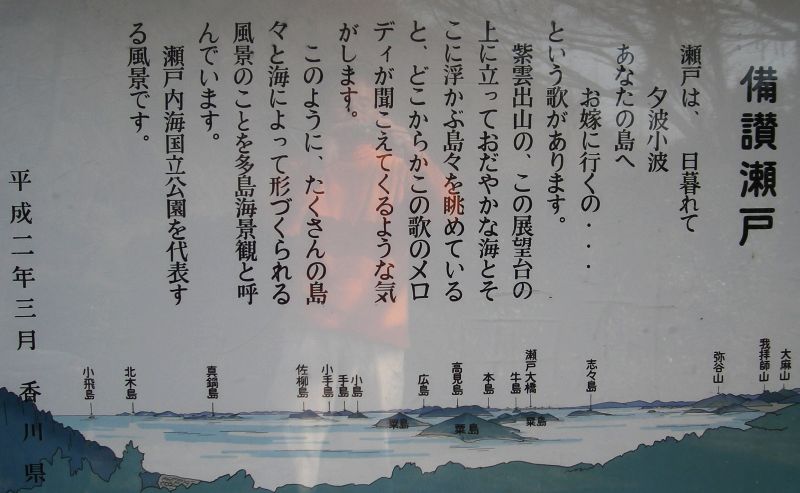 備讃瀬戸
瀬戸は、日暮れて
夕波小波
あなたの島へ
お嫁に行くの・・・
という歌があります。
紫雲出山の、この展望台の
上に立っておだやかな海とそ
こに浮かぶ島々を眺めている
と、どこからかこの歌のメロ
ディが聞こえてくるような気
がします。
このように、たくさんの島
々と海によって形づくられる
風景のことを多島海景観と呼
んでいます。
瀬戸内海国立公園を代表す
る風景です。
平成二年三月 香川県
大麻山
我拝師山
弥谷山
志々島
瀬戸大橋
牛島
本島
高見島
広島
小島
手島
小手島
佐柳島
真鍋島
北木島
小飛島
粟島
粟島
粟島